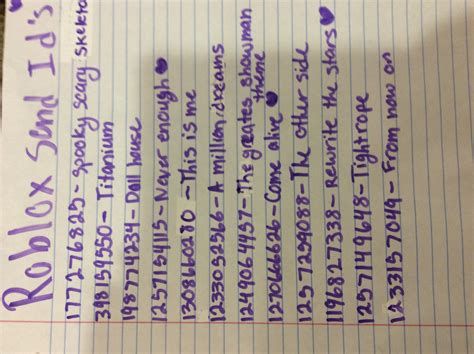 Roblox Send Id's
177276825 - Spooky scary skeleto
398159550 - Titanium
198774334 - Doll house
1257154115 - Never enough
1308660280 - This is me
1233052566 - A million dreams
1249064457 - The greates showman theme
1270666626 - Come alive
1257259088 - The other side
1196827338 - Rewrite the stars
1257149648 - Tightrope
1233157049 - From now on